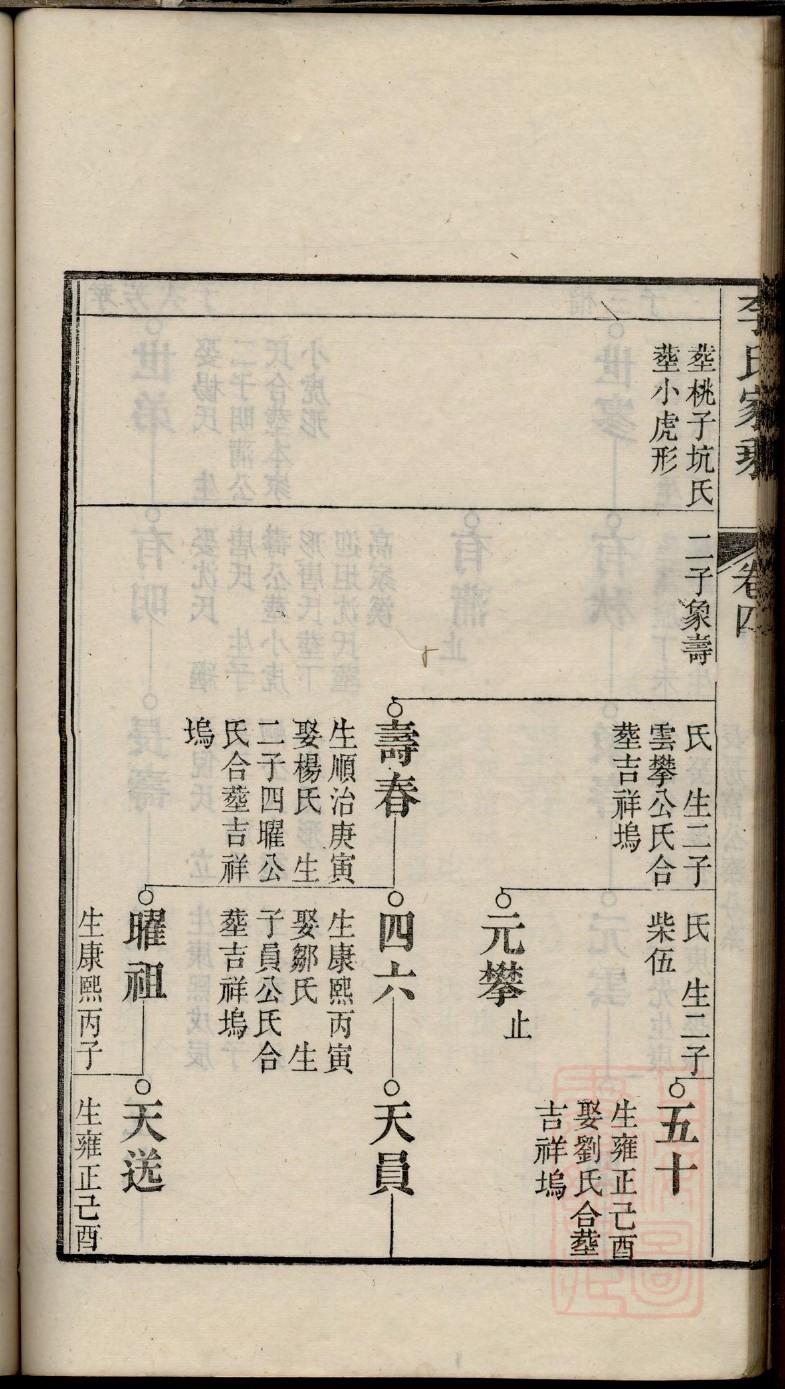 李氏家乘
卷四
塟桃子坑氏
塟小虎形
二子象壽
氏　生二子
雲攀公氏合
塟吉祥塢
壽春
生順治庚寅
娶楊氏　生
二子四曜公
氏合塟吉祥
塢
氏　生二子
柴伍
元攀
止
四六
生康熙丙寅
娶鄒氏　生
子員公氏合
塟吉祥塢
曜祖
生康熙丙子
五十
生雍正己酉
娶劉氏合塟
吉祥塢
天員
天送
生雍正己酉